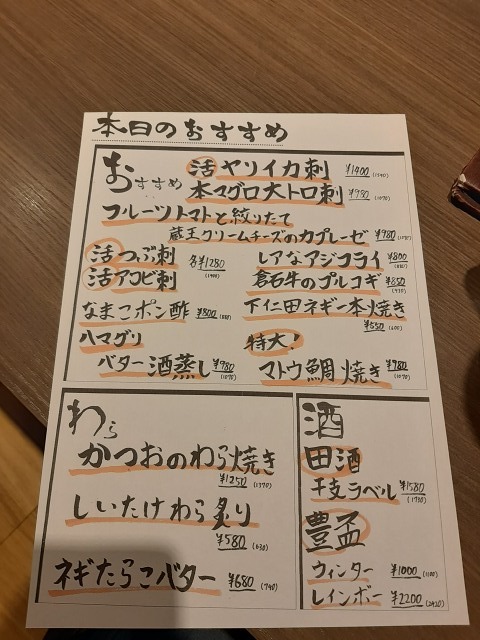 本日のおすすめ
おすすめ
活ヤリイカ刺 ¥1400 (1540)
本マグロ大トロ刺 ¥980 (1070)
フルーツトマトと絞りたて
蔵王クリームチーズのカプレーゼ ¥980 (1070)
活つぶ刺
活アワビ刺 各¥1280 (1400)
レアなアジフライ ¥800 (880)
倉石牛のプルコギ ¥850 (930)
なまこポン酢 ¥800 (880)
下仁田ネギ一本焼き
¥550 (600)
ハマグリ
バター酒蒸し ¥980 (1070)
特大!
マトウ鯛焼き ¥980 (1070)
わら
かつおのわら焼き
¥1250 (1370)
しいたけわら炙り
¥580 (630)
ネギたらこバター ¥680 (740)
酒
田酒
干支ラベル ¥1580 (1730)
豊盃
ウィンター ¥1000 (1100)
レインボー ¥2200 (2420)